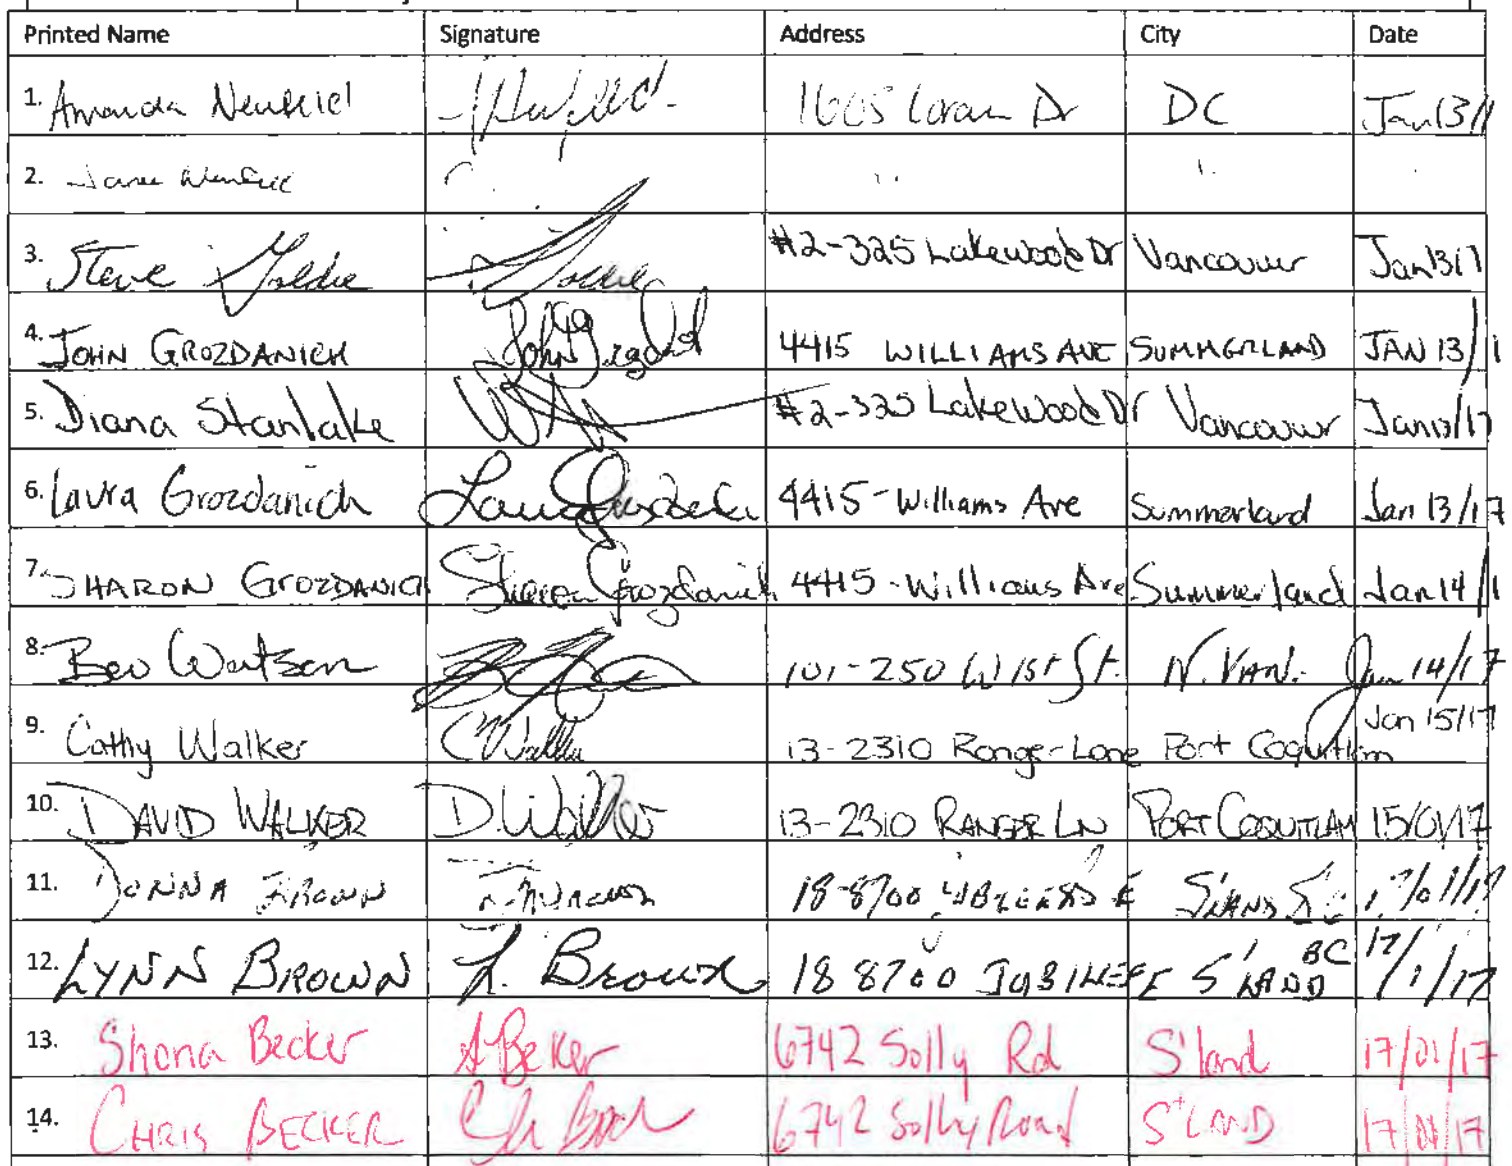 Printed Name Signature Address City Date
1. Amanda 1605 Loran Dr DC Jan 13/1
2.
3. Steve Goldie #2-325 Lakewood Dr Vancouver Jan 13/17
4. JOHN GROZDANICH John 4415 WILLIAMS AVE SUMMERLAND JAN 13/1
5. Diana Stanlake #2-325 Lakewood Dr Vancouver Jan 13/17
6. Laura Grozdanich Laura Grozdanich 4415-Williams Ave Summerland Jan 13/17
7. SHARON GROZDANICH Sharon Grozdanich 4415-Williams Ave Summerland Jan 14/1
8. Bev Watson 101-250 W 1st St. N. VAN. Jan 14/17
9. Cathy Walker C Walker 13-2310 Ranger Lane Port Coquitlam Jan 15/17
10. DAVID WALKER D. Walker 13-2310 RANGER LN PORT COQUITLAM 15/01/17
11. DONNA BROWN 18-8700 17/01/17
12. LYNN BROWN L. Brown 18 8700 JUBILEE E S'LAND BC 17/1/17
13. Shona Becker S Becker 6742 Solly Rd S'land 17/01/17
14. CHRIS BECKER 6742 Solly Road S'LAND 17/01/17